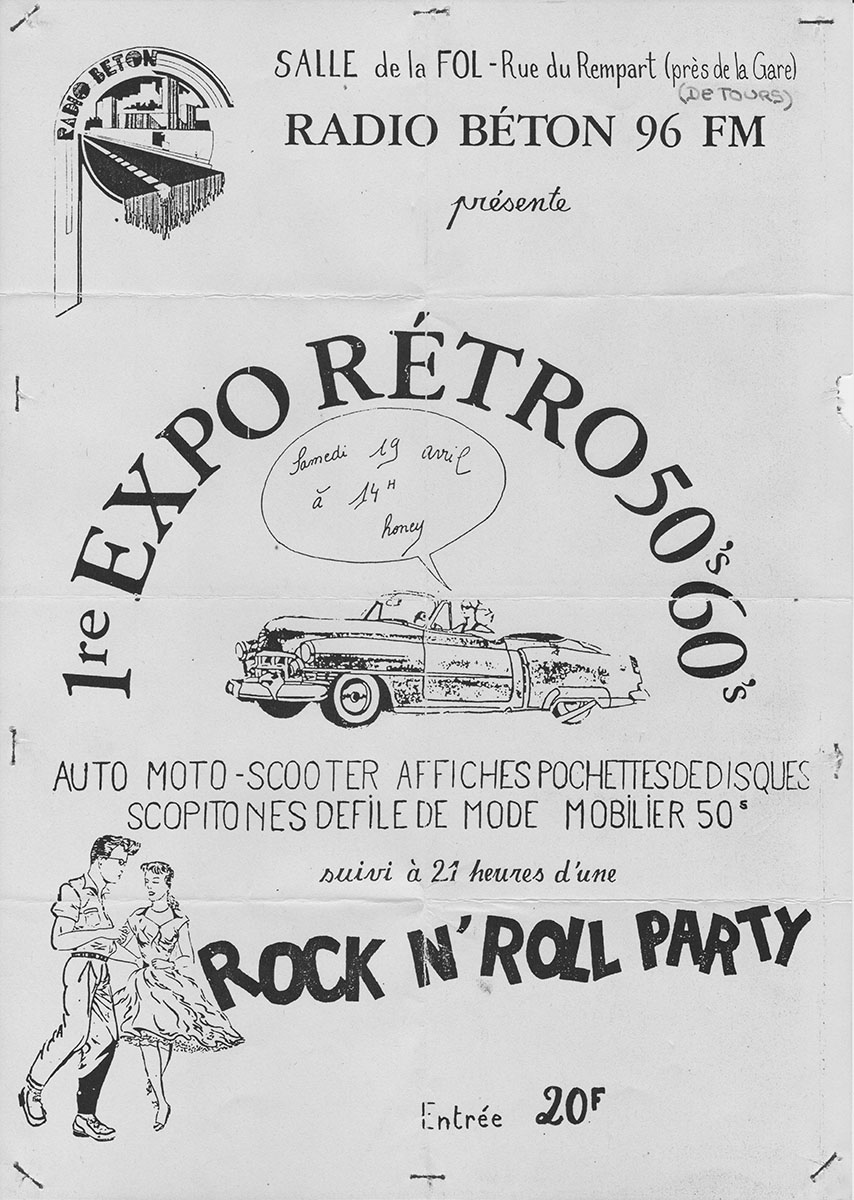 RADIO BETON
SALLE de la FOL - Rue du Rempart (près de la Gare)
(De TOURS)
RADIO BÉTON 96 FM
présente
1re EXPO RÉTRO 50's 60's
Samedi 19 avril
à 14H
honey
AUTO MOTO-SCOOTER AFFICHES POCHETTES DE DISQUES
SCOPITONES DEFILE DE MODE MOBILIER 50s
suivi à 21 heures d'une
ROCK N' ROLL PARTY
Entrée 20F